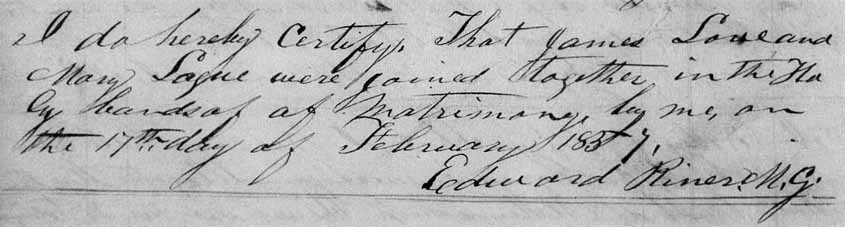 I do hereby Certify, That James Love and
Mary Logue were joined together in the Ho
ly bands of of Matrimony, by me, on
the 17th day of February 1857,
Edward Riner. M. G.